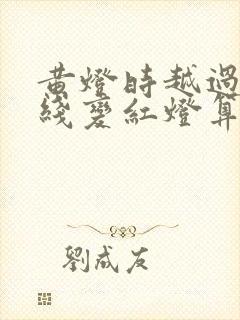 黄燈時越過
綫變紅燈算
劉成友